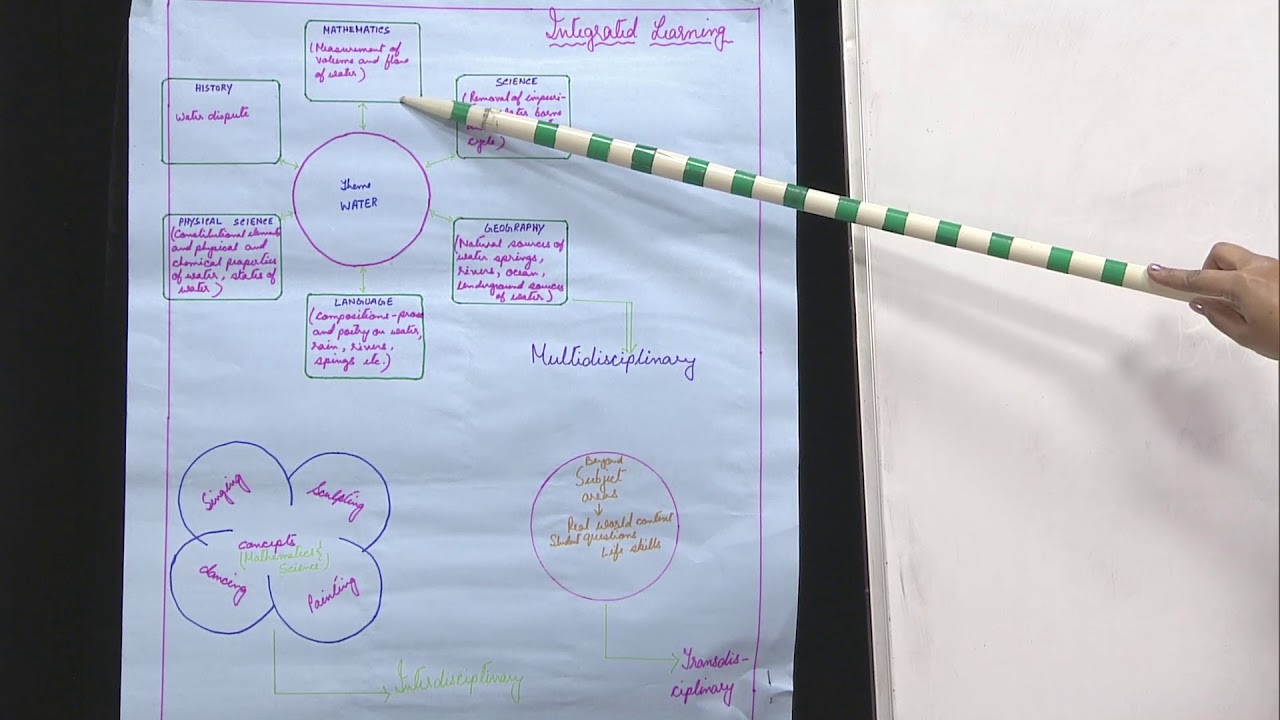 Integrated Learning
MATHEMATICS
(Measurement of
volume and flow
of water)
HISTORY
Water dispute
SCIENCE
(Removal of impuri-
water borne
cycle)
Theme
WATER
PHYSICAL SCIENCE
(Constitutional elements
and physical and
chemical properties
of water, states of
water)
GEOGRAPHY
(Natural sources of
water springs,
rivers, ocean,
underground sources
of water)
LANGUAGE
(compositions-prose
and poetry on water,
rain, rivers,
spings etc.)
Multidisciplinary
Singing
Sculpting
concepts
(Mathematics &
Science)
dancing
Painting
Interdisciplinary
Beyond
Subject
areas
Real world content
Student questions
Life skills
Transdis-
ciplinary